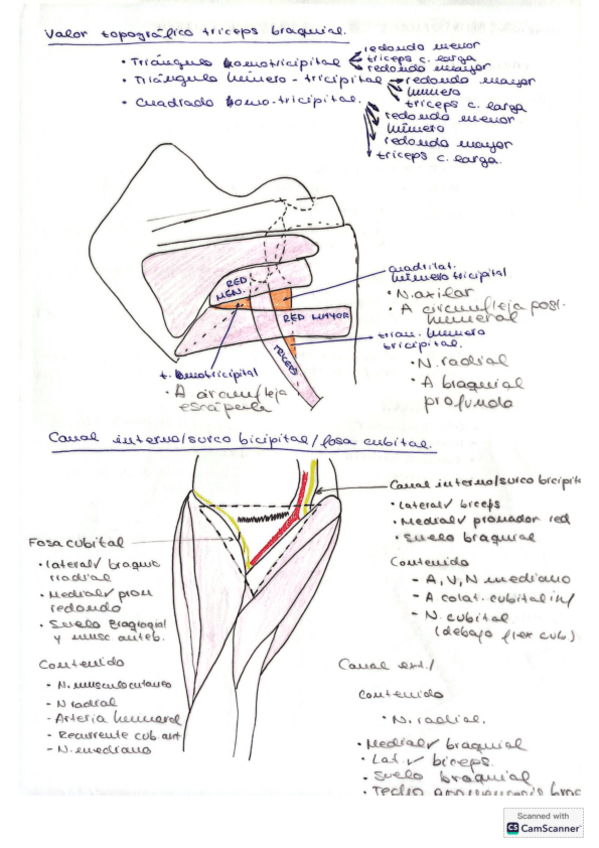 Valor topográfico triceps braquial.
• Triángulo homotricipital
redondo menor
triceps c. larga
redondo mayor
• Triángulo húmero-tricipital
redondo mayor
húmero
triceps c. larga
• Cuadrado homo-tricipital.
redondo menor
húmero
redondo mayor
triceps c. larga.
RED
MEN.
RED MAYOR
TRICEPS
cuadrilat.
húmero tricipital
• N. axilar
• A circumfleja post.
humeral
trian. húmero
tricipital.
• N. radial
• A braquial
profundo
t. homotricipital
• A circumfleja
escápula
Canal interno/surco bicipital/fosa cubital.
Canal interno/surco bicipit
• Lateral biceps
• Medial pronador red
• Suelo braquial
Contenido
- A, V, N mediano
- A. colat. cubital inf
- N. cubital
(debajo flex cub)
Fosa cubital
• lateral braquio
radial
• Medial pron
redondo
• Suelo
y musc anteb.
Contenido
- N. musculocutaneo
- N radial
- Arteria humeral
- Recurrente cub ant
- N. mediano
Canal ext./
Contenido
• N. radial.
• Medial braquial
• Lat. biceps.
• Suelo braquial
• Techo
Scanned with
CS CamScanner